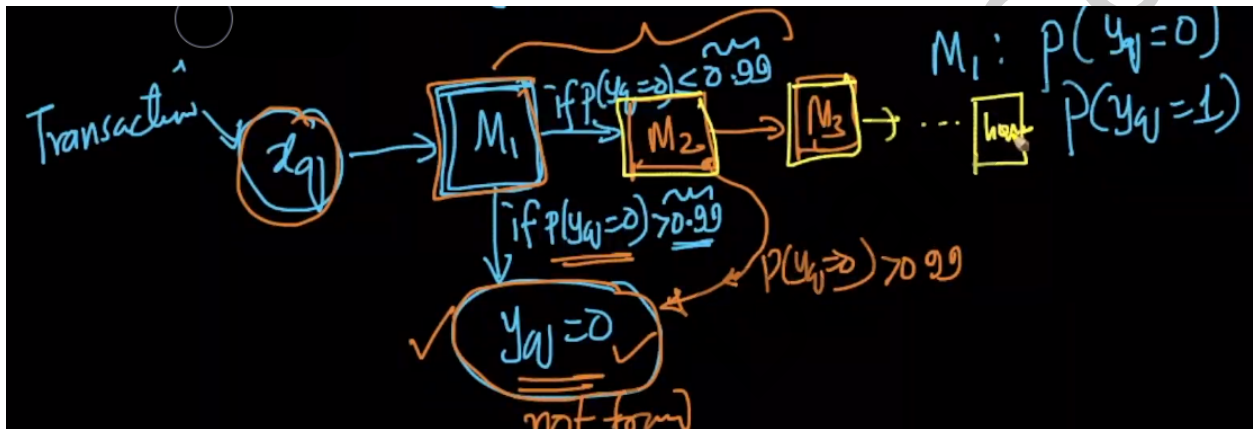 Transaction
x_q
M1
if P(y_q=0) < 0.99
M2
M3
...
M1: P(y_q=0)
P(y_q=1)
if P(y_q=0) > 0.99
P(y_q=0) > 0.99
y_q=0
not